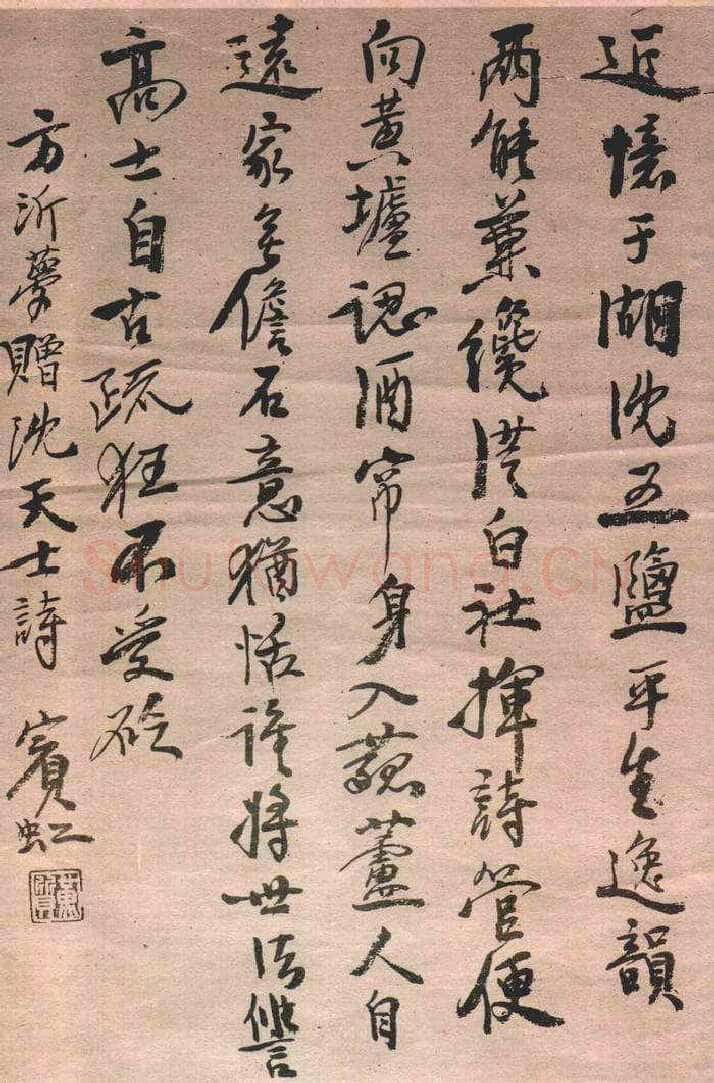 近憶于湖沈五鹽平生逸韻
兩能兼纔從白社揮詩管便
向黃壚認酒帘身入菰蘆人自
遠家無儋石意猶恬誰將世法讐
高士自古疏狂不受砭
方沂夢贈沈天士詩 賓虹
Shufawang.CN